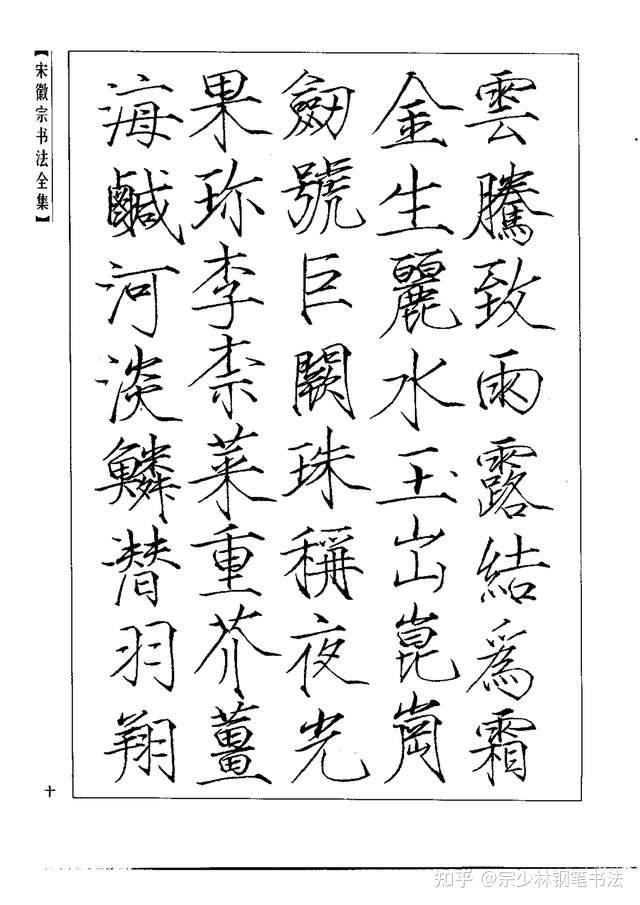 雲騰致雨露結爲霜
金生麗水玉出崑崗
劒號巨闕珠稱夜光
果珎李柰菜重芥薑
海鹹河淡鱗潛羽翔
【宋徽宗书法全集】
十
知乎 @宗少林钢笔书法